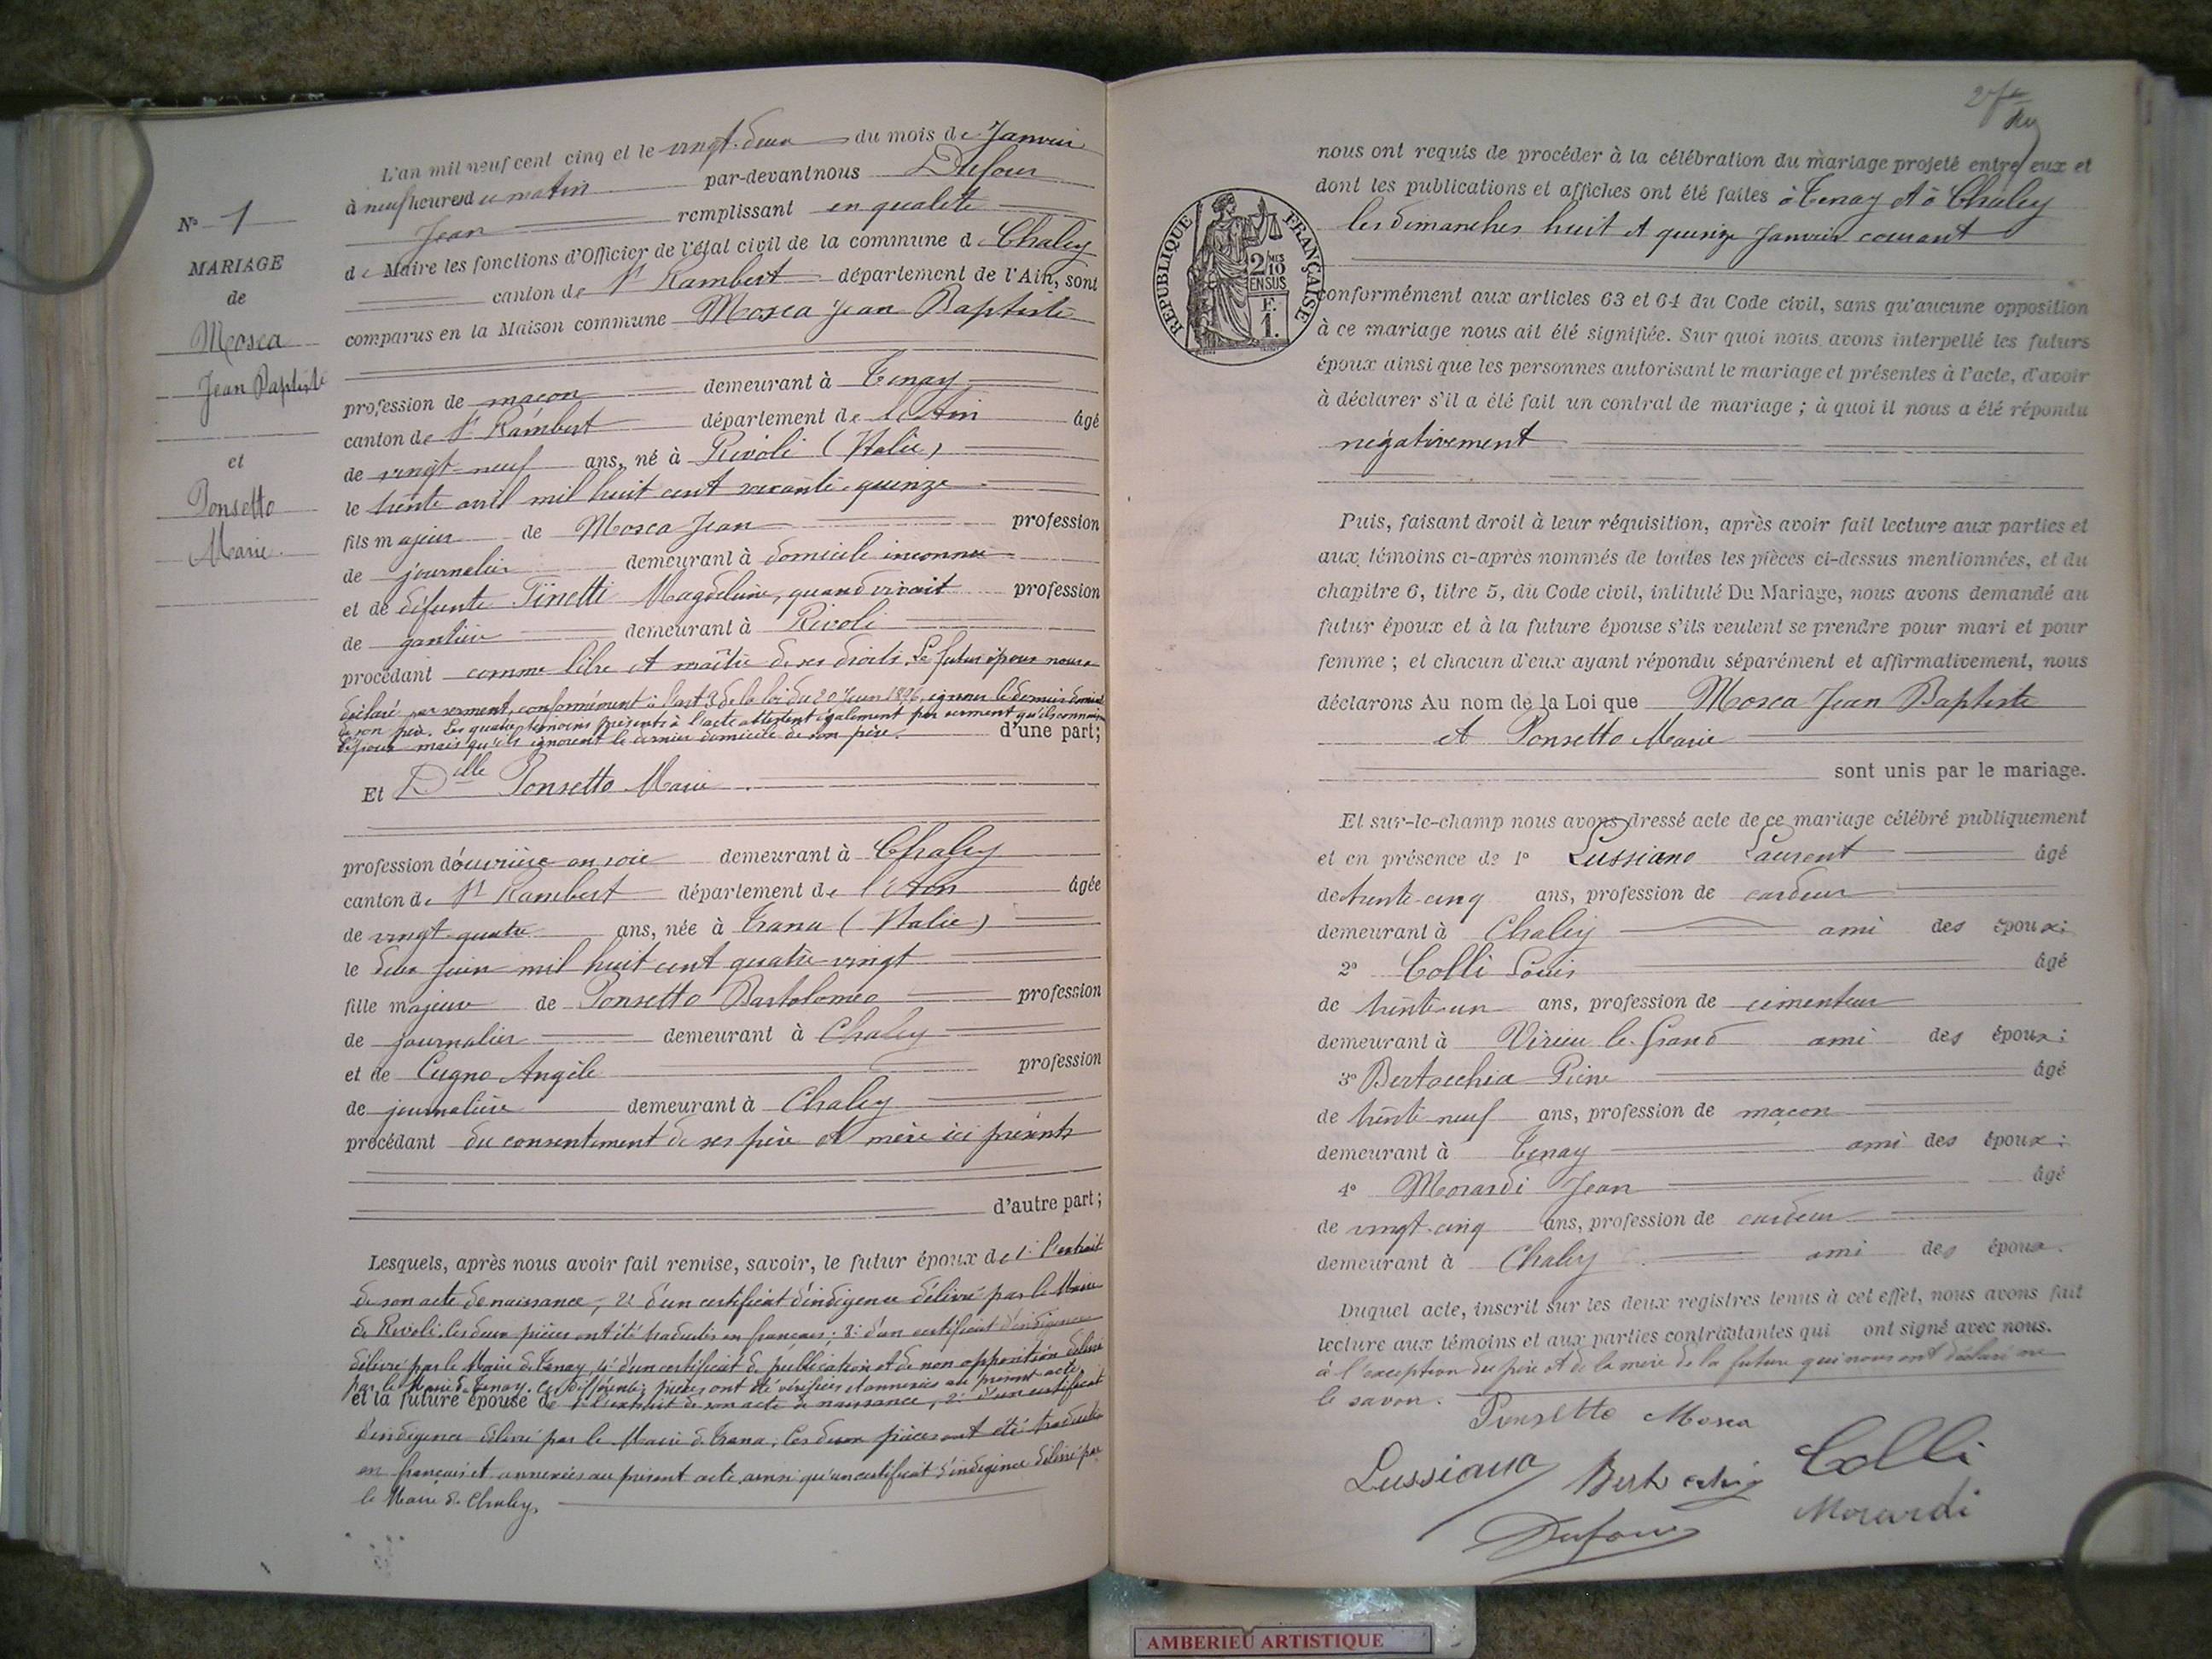 N° 1
MARIAGE
de
Mosca
Jean Baptiste
et
Ponsetto
Marie.
L'an mil neuf cent cinq et le vingt-deux du mois de Janvier
à neuf heures du matin par-devant nous Dufour
Jean remplissant en qualité
de Maire les fonctions d'Officier de l'état civil de la commune de Chaley
canton de St Rambert département de l'Ain, sont
comparus en la Maison commune Mosca Jean Baptiste
profession de maçon demeurant à Tenay
canton de St Rambert département de l'Ain âgé
de vingt-neuf ans, né à Rivoli (Italie)
le trente avril mil huit cent soixante-quinze
fils majeur de Mosca Jean profession
de journalier demeurant à domicile inconnu
et de défunte Tinetti Magdeleine, quand vivait profession
de gantière demeurant à Rivoli
procédant comme libre et maître de ses droits. Le futur époux nous a
déclaré par serment, conformément à l'art 3 de la loi du 20 Juin 1896, ignorer le dernier domicile
de son père. Les quatre témoins présents à l'acte attestent également par serment qu'ils connaissent
l'époux mais qu'ils ignorent le dernier domicile de son père. d'une part;
Et Dlle Ponsetto Marie.
profession d'ouvrière en soie demeurant à Chaley
canton de St Rambert département de l'Ain âgée
de vingt-quatre ans, née à Trana (Italie)
le deux Juin mil huit cent quatre-vingt
fille majeure de Ponsetto Bartolomeo profession
de journalier demeurant à Chaley
et de Cugno Angèle profession
de journalière demeurant à Chaley
procédant du consentement de ses père et mère ici présents
d'autre part;
Lesquels, après nous avoir fait remise, savoir, le futur époux de 1° l'extrait
de son acte de naissance; 2° d'un certificat d'indigence délivré par le Maire
de Rivoli. Ces deux pièces ont été traduites en français; 3° d'un certificat d'indigence
délivré par le Maire de Tenay, 4° d'un certificat de publication et de non opposition délivré
par le Maire de Tenay. Ces différentes pièces ont été vérifiées et annexées au présent acte,
et la future épouse de 1° l'extrait de son acte de naissance, 2° d'un certificat
d'indigence délivré par le Maire de Trana; Ces deux pièces ont été traduites
en français et annexées au présent acte ainsi qu'un certificat d'indigence délivré par
le Maire de Chaley.
nous ont requis de procéder à la célébration du mariage projeté entre eux et
dont les publications et affiches ont été faites à Tenay et à Chaley
les dimanches huit et quinze Janvier courant
RÉPUBLIQUE FRANÇAISE
2/10 MES
EN SUS
F.
1.
conformément aux articles 63 et 64 du Code civil, sans qu'aucune opposition
à ce mariage nous ait été signifiée. Sur quoi nous avons interpellé les futurs
époux ainsi que les personnes autorisant le mariage et présentes à l'acte, d'avoir
à déclarer s'il a été fait un contrat de mariage; à quoi il nous a été répondu
négativement
Puis, faisant droit à leur réquisition, après avoir fait lecture aux parties et
aux témoins ci-après nommés de toutes les pièces ci-dessus mentionnées, et du
chapitre 6, titre 5, du Code civil, intitulé Du Mariage, nous avons demandé au
futur époux et à la future épouse s'ils veulent se prendre pour mari et pour
femme; et chacun d'eux ayant répondu séparément et affirmativement, nous
déclarons Au nom de la Loi que Mosca Jean Baptiste
et Ponsetto Marie
sont unis par le mariage.
Et sur-le-champ nous avons dressé acte de ce mariage célébré publiquement
et en présence de 1° Lussiano Laurent âgé
de trente-cinq ans, profession de cardeur
demeurant à Chaley ami des époux;
2° Colli Louis âgé
de trente-un ans, profession de cimenteur
demeurant à Virieu-le-Grand ami des époux;
3° Bertacchia Pierre âgé
de trente-neuf ans, profession de maçon
demeurant à Tenay ami des époux;
4° Morardi Jean âgé
de vingt-cinq ans, profession de cardeur
demeurant à Chaley ami des époux.
Duquel acte, inscrit sur les deux registres tenus à cet effet, nous avons fait
lecture aux témoins et aux parties contractantes qui ont signé avec nous.
à l'exception du père et de la mère de la future qui nous ont déclaré ne
le savoir.
Ponsetto Mosca
Lussiana Colli
Morardi
Dufour
AMBERIEU ARTISTIQUE